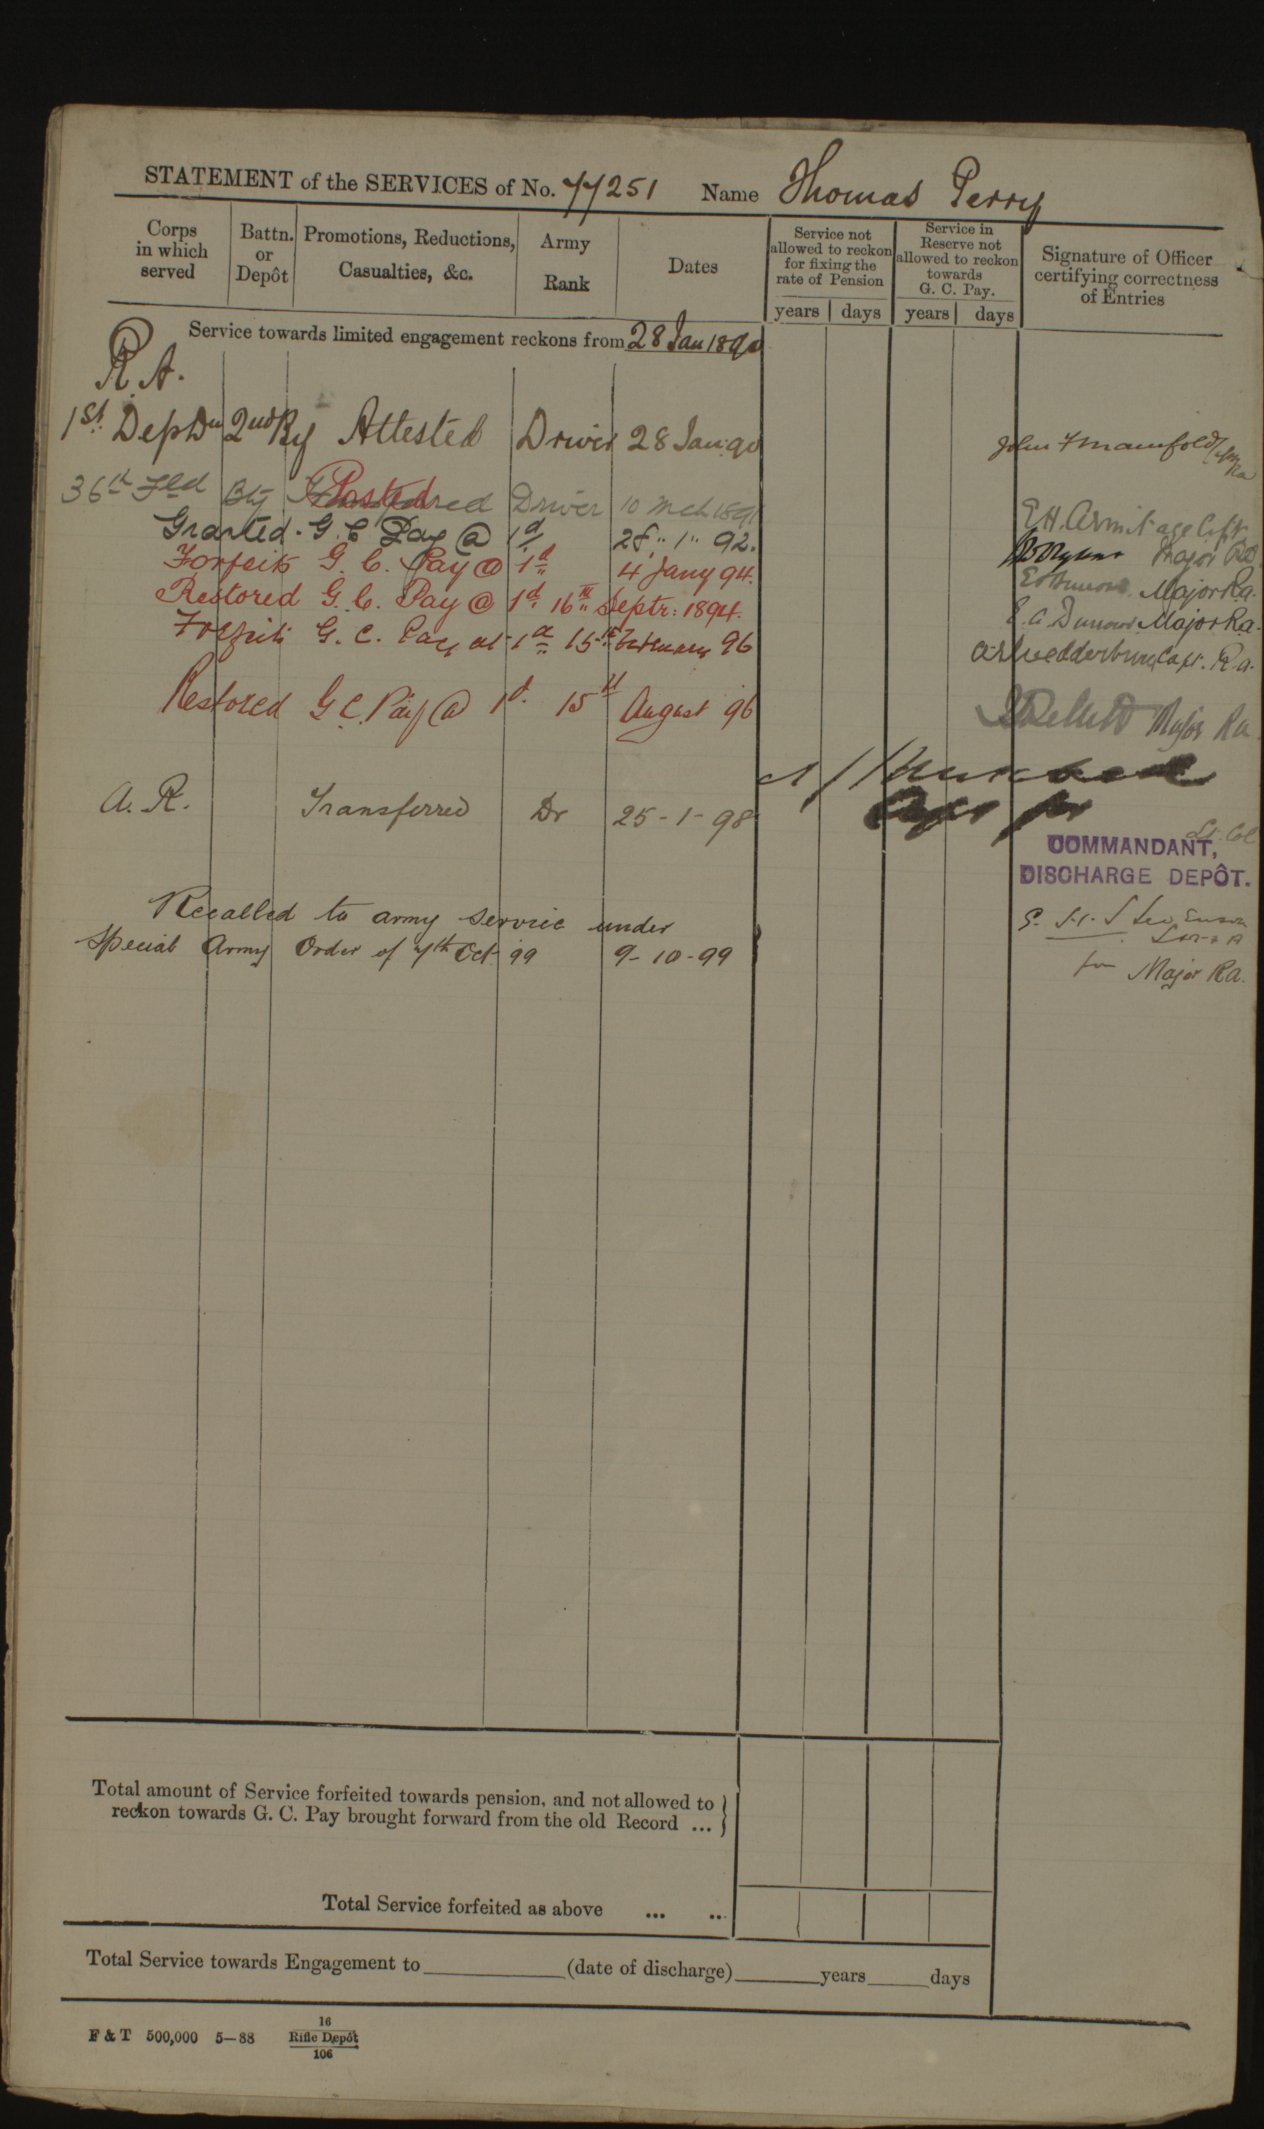 STATEMENT of the SERVICES of No. 77251 Name Thomas Perry
Corps in which served
Battn. or Depôt
Promotions, Reductions, Casualties, &c.
Army Rank
Dates
Service not allowed to reckon for fixing the rate of Pension
years days
Service in Reserve not allowed to reckon towards G. C. Pay.
years days
Signature of Officer certifying correctness of Entries
Service towards limited engagement reckons from 28 Jan 1890
R.A.
1st Dep Dn 2nd By Attested Driver 28 Jan 90 John Manifold
36th Fld Bty Posted Driver 10 Mch 1891 E H. Armitage Capt
Granted G. C Pay @ 1d 28 " 1 " 92. Major RA
Forfeits G. C. Pay @ 1d 4 Jany 94. Major Ra.
Restored G. C. Pay @ 1d 16th Septr: 1894. Major Ra.
Forfeits G. C. Pay at 1d 15th February 96 Wedderburn Capt. R.a.
Restored G C. Pay @ 1d. 15th August 96 Major Ra
A. R. Transferred Dr 25-1-98
Lt. Col
COMMANDANT,
DISCHARGE DEPÔT.
Recalled to army service under
Special Army Order of 7th Oct 99 9-10-99
for Major RA.
Total amount of Service forfeited towards pension, and not allowed to
reckon towards G. C. Pay brought forward from the old Record ...
Total Service forfeited as above ... ...
Total Service towards Engagement to (date of discharge) years days
F & T 500,000 5—88 16
Rifle Depôt
106